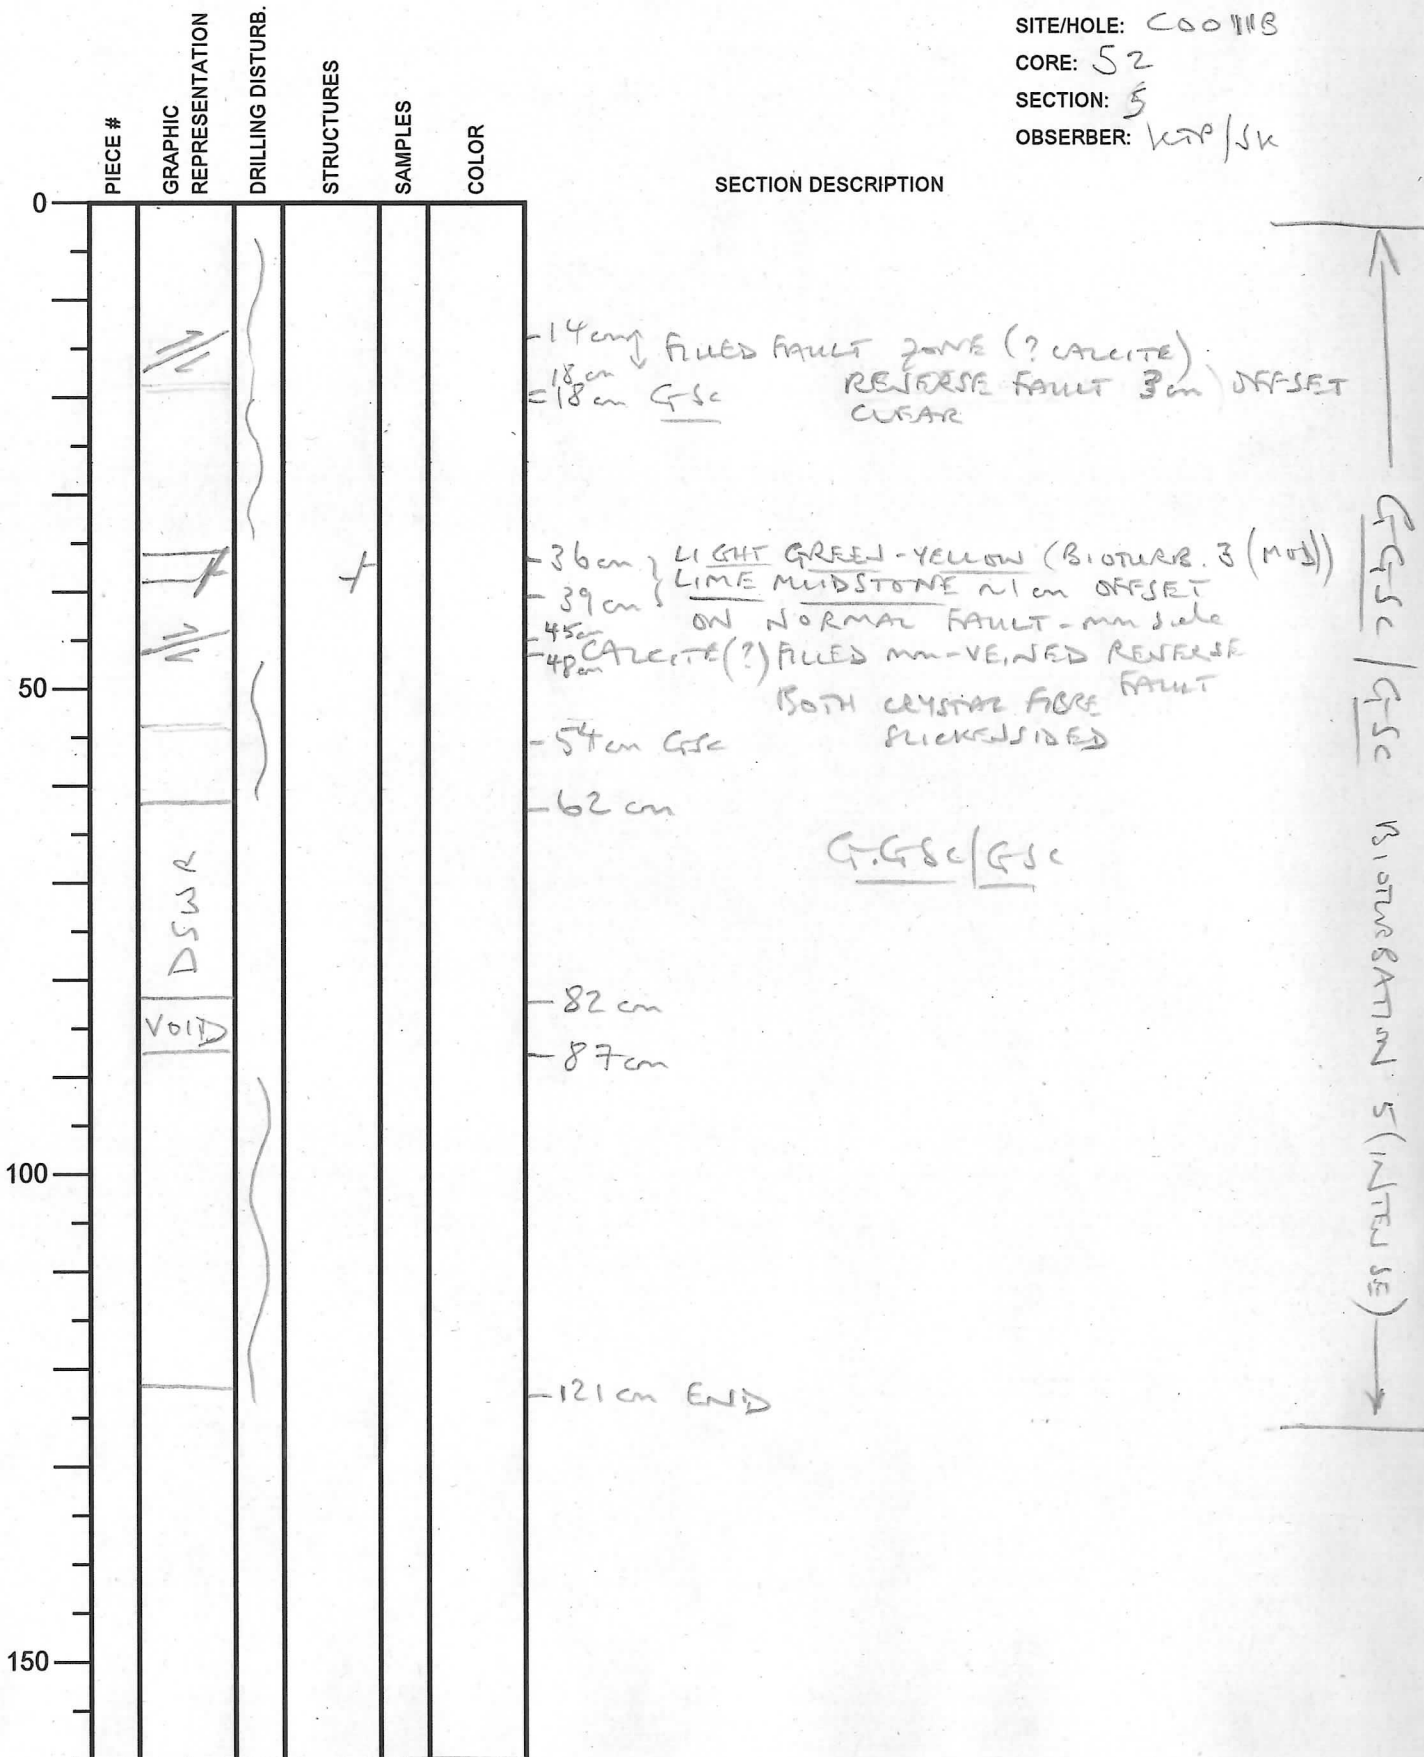 SITE/HOLE: C0011B
CORE: 52
SECTION: 5
OBSERBER: KTP/SK
PIECE #
GRAPHIC
REPRESENTATION
DRILLING DISTURB.
STRUCTURES
SAMPLES
COLOR
SECTION DESCRIPTION
0
-14cm FILLED FAULT ZONE (? CALCITE)
18cm REVERSE FAULT 3cm OFFSET
=18cm GSc CLEAR
-36cm } LIGHT GREEN-YELLOW (BIOTURB. 3 (MOD))
-39cm } LIME MUDSTONE ~1cm OFFSET
ON NORMAL FAULT - mm
-45cm
-48cm CALCITE(?) FILLED mm-VEINED REVERSE
FAULT
50
BOTH CRYSTAL FIBRE
SLICKENSIDED
-54cm GSc
-62 cm
G.GSc/GSc
DSWR
-82 cm
VOID
-87cm
100
-121 cm END
150
G.GSc/GSc BIOTURBATION 5 (INTENSE)